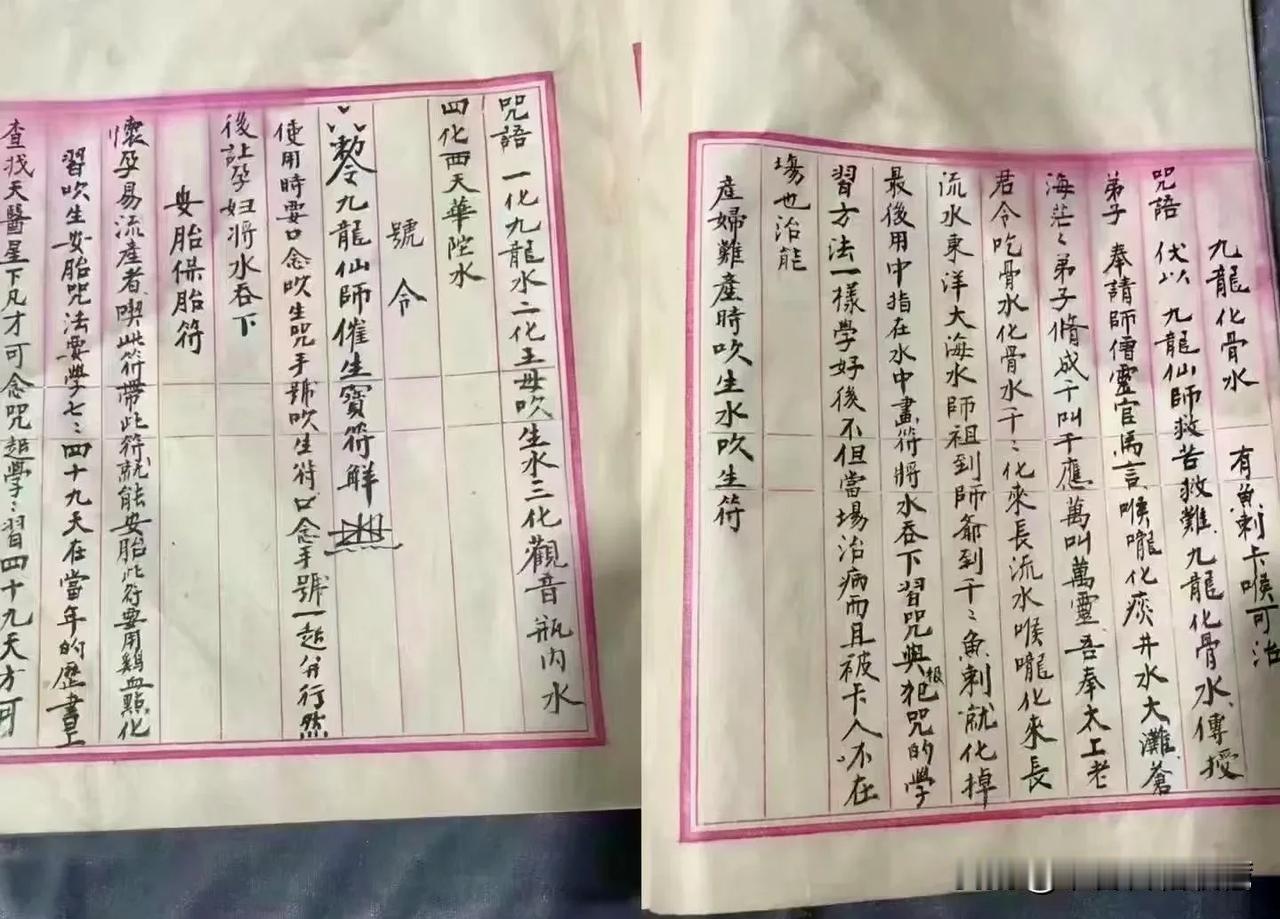 九龍化骨水 有魚刺卡喉可治
咒語 伏以 九龍仙師救苦救難九龍化骨水傳授
弟子 奉請師僧靈官馬言喉嚨化痰井水大灘蒼
海茫〻弟子脩成千叫千應萬叫萬靈吾奉太上老
君令吃骨水化骨水干〻化來長流水喉嚨化來長
流水東洋大海水師祖到師爺到干〻魚刺就化掉
最後用中指在水中畫符將水吞下習咒與犯猳咒的學
習方法一樣學好後不但當場治病而且被卡人不在
場也治能
產婦難產時吹生水吹生符
咒語 一化九龍水二化王母吹生水三化觀音瓶内水
四化西天華陀水
號令
敕令九龍仙師催生寶符解
使用時要口念吹生咒手號吹生符口念手號一起分行然
後讓孕婦將水吞下
安胎保胎符
懷孕易流產者喫此符帶此符就能安胎此符要用鷄血點化
習吹生安胎咒法要學七〻四十九天在當年的歷書上
查找天醫星下凡才可念咒起學〻習四十九天方可